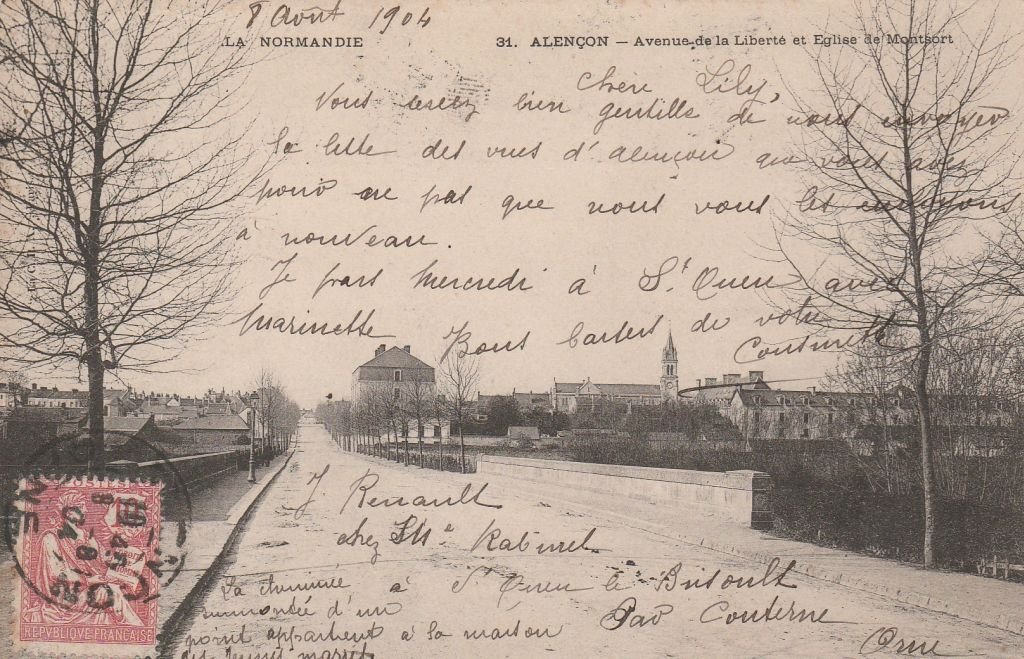 8 Août 1904
LA NORMANDIE
31. ALENÇON — Avenue de la Liberté et Eglise de Montsort
Chère Lily,
Vous seriez bien gentille de nous envoyer
la liste des vues d'alençon que vous avez
pour ne pas que nous vous les envoyons
à nouveau.
Je pars Mercredi à St. Ouen avec
Marinette Bons baisers de votre
J. Renault
chez Mme
à St Ouen le Brisoult
Par Couterne
Orne
La cheminée
surmontée d'un
point appartient à la maison
REPVBLIQVE FRANÇAISE